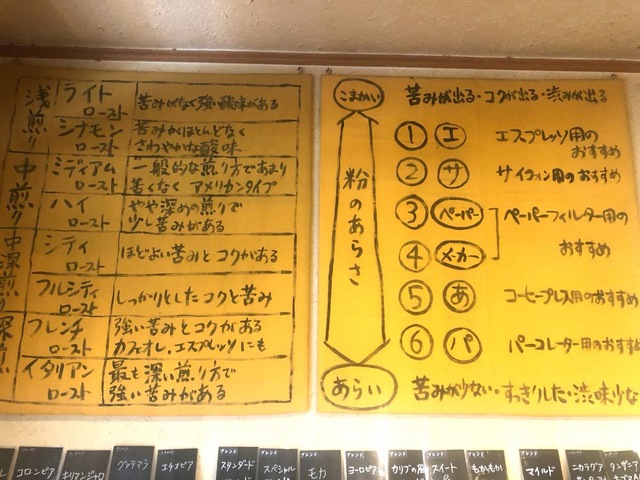 浅煎り
ライト
ロースト
苦みがなく強い酸味がある
シナモン
ロースト
苦みがほとんどなく
さわやかな酸味
中煎り
ミディアム
ロースト
一般的な煎り方であまり
苦くなく アメリカンタイプ
ハイ
ロースト
やや深めの煎りで
少し苦みがある
中深煎り
シティ
ロースト
ほどよい苦みとコクがある
フルシティ
ロースト
しっかりとしたコクと苦み
深煎り
フレンチ
ロースト
強い苦みとコクがある
カフェオレ、エスプレッソにも
イタリアン
ロースト
最も深い煎り方で
強い苦みがある
こまかい
苦みが出る・コクが出る・渋みが出る
粉のあらさ
1 エ エスプレッソ用の
おすすめ
2 サ サイフォン用のおすすめ
3 ペーパー ペーパーフィルター用の
4 メーカー おすすめ
5 あ コーヒープレス用のおすすめ
6 パ パーコレーター用のおすすめ
あらい
苦みが少ない・すっきりした・渋味少な
コロンビア
キリマンジャロ
グァテマラ
エチオピア
ブレンド
スタンダード
ブレンド
スペシャル
ブレンド
モカ
ブレンド
ヨーロピアン
ブレンド
カリブの風
ブレンド
スイート
&
ブレンド
ブレンド
マイルド
ニカラグア
タンザニア